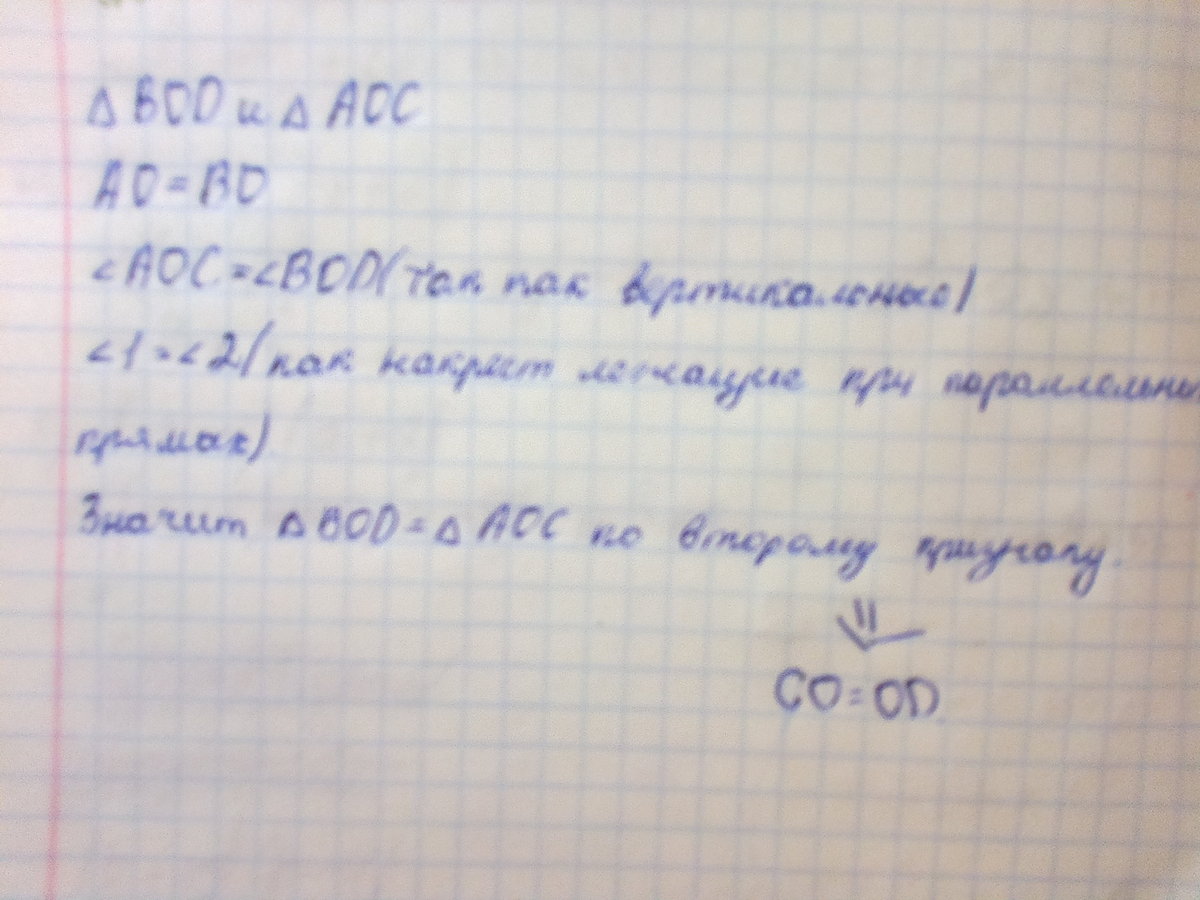 △ BOD и △ AOC
AO = BO
∠AOC = ∠BOD (так как вертикальные)
∠1 = ∠2 (как накрест лежащие при параллельных
прямах)
Значит △ BOD = △ AOC по второму признаку.
⇓
CO = OD